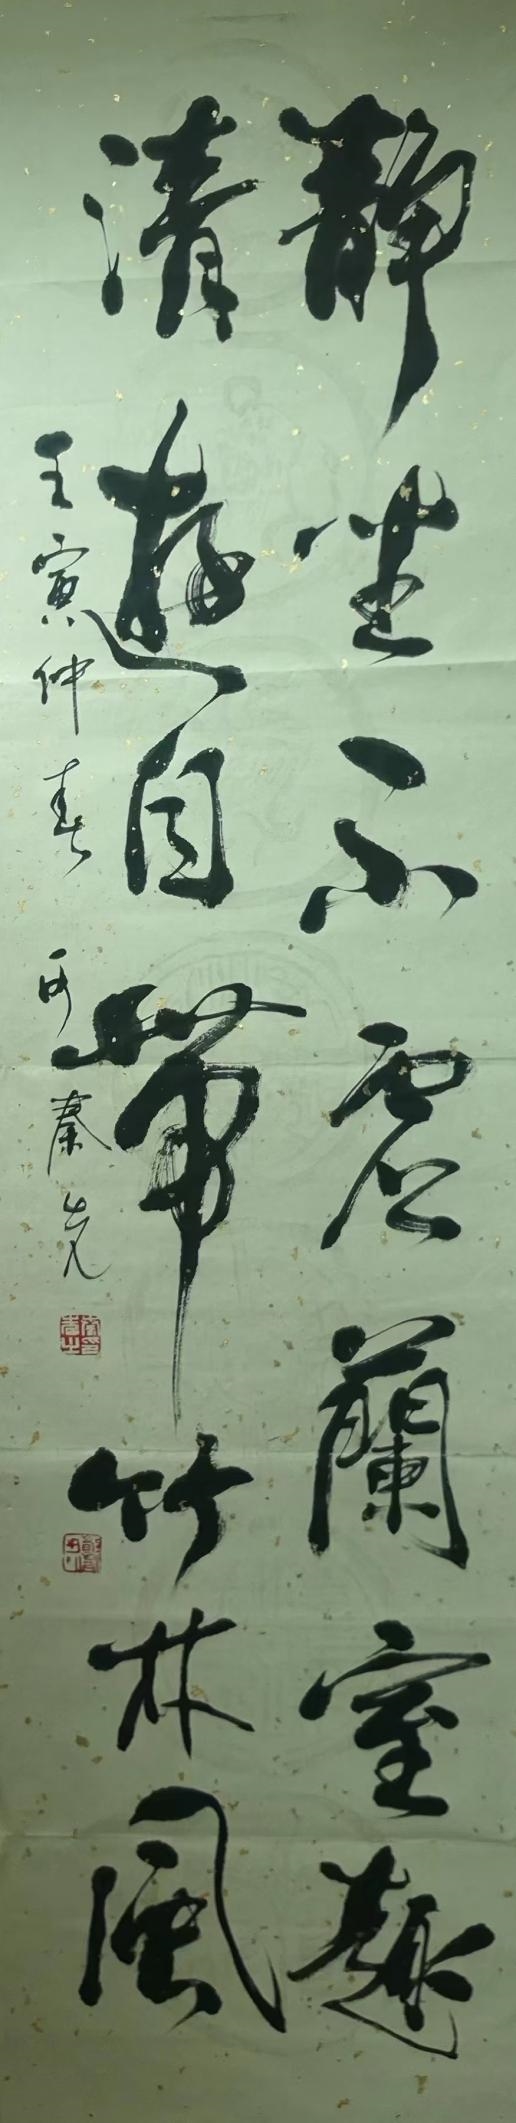 静坐不虚蘭室趣
清遊自帶竹林風
壬寅仲春 秦先